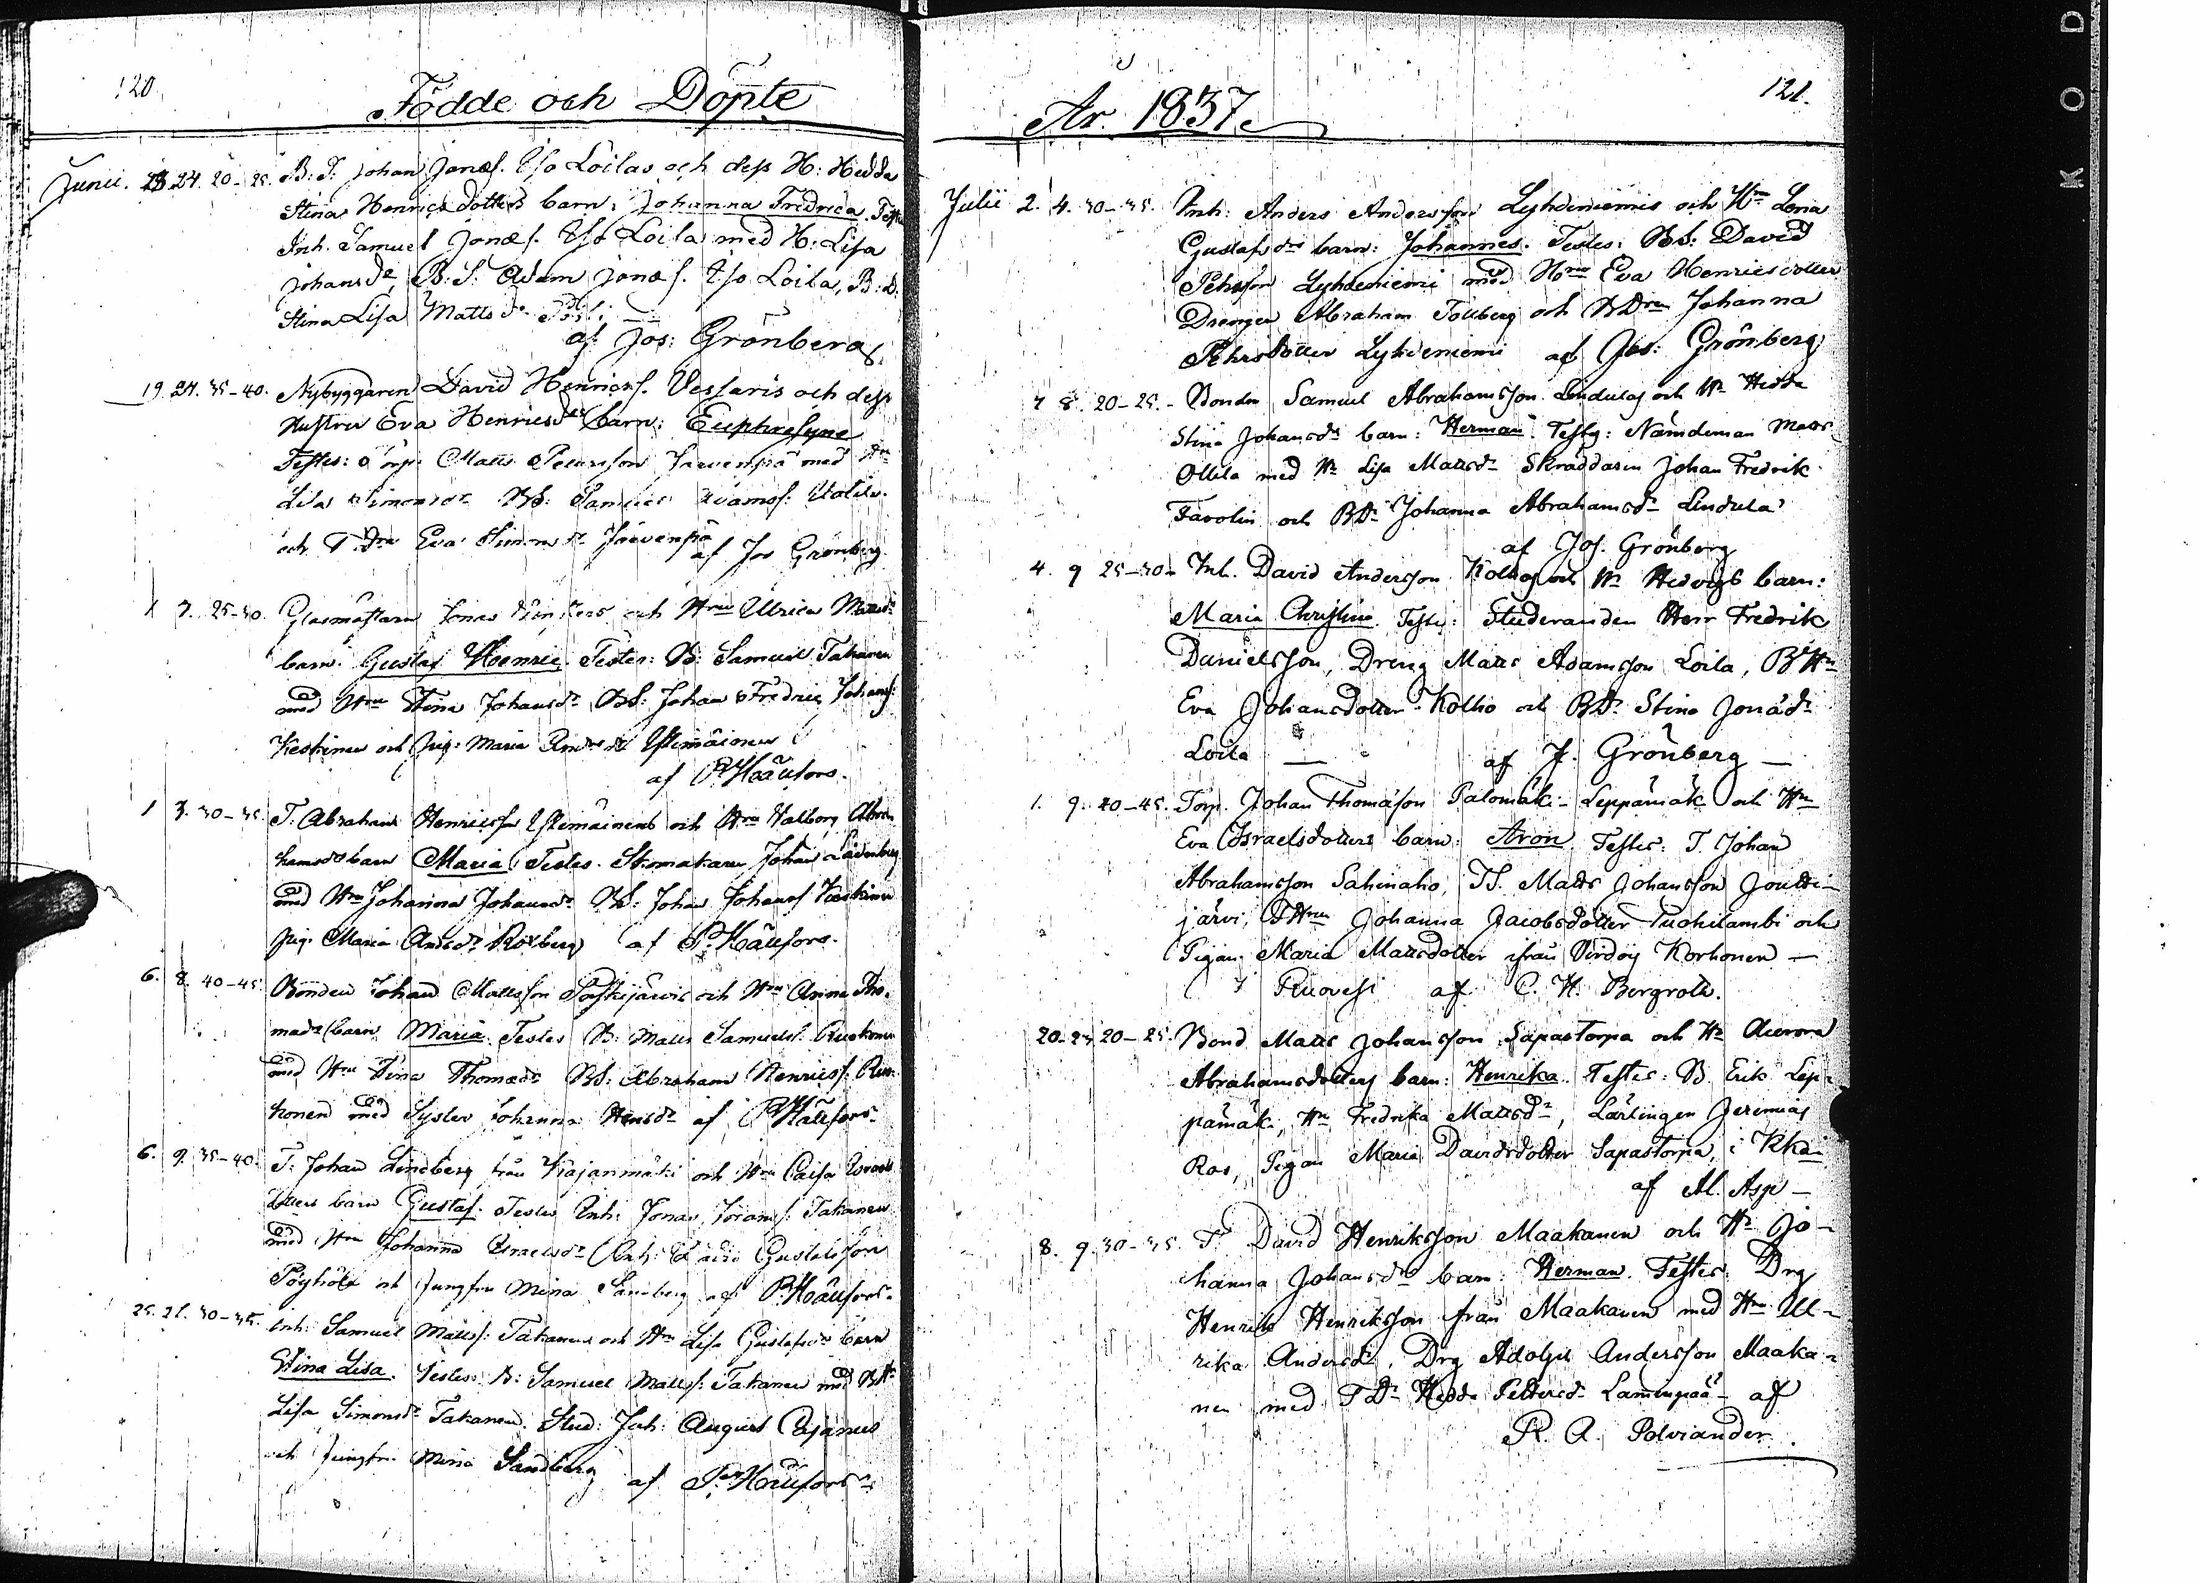 120.
Födde och Döpte
Junii. 23 24. 20-25. B. S. Johan Jonæs. Iso Loilas och dess H: Hedda
Stina Henricsdotters barn: Johanna Fredrica. Test
Inh. Samuel Jonæs. Iso Loila med H: Lisa
Johansdr, B. S. Adam Jonæs. Iso Loila, B: d.
Stina Lisa Mattsdr
af Jos: Grönberg.
19. 24. 35-40. Nybyggaren David Henrics. Vessaris och dess
Hustru Eva Henricsdrs barn: Euphrosyne
Testes: Torp. Matts Petersson Jærvenpä med Hn
Lisa Simonsdr BS: Adams.
och T. Dr Eva Simonsdr Järvenpä
af Jos Grönberg.
1 7. 25-30. Glasmästarn Jonas och Hru Ulrica Mattsdr
barn. Gustaf Hoenric. Testes: B: Samuel Takanen
med Hru Stina Johansdr BS: Johan Fredric Johans:
Keskinen och Pig: Maria
af P. Hällfors.
1 3. 30-35. T. Abraham Henricsson och Hru Valborg Abra-
hamsdrs barn Maria. Testes. Skomakaren Johan
med Hru Johanna Johansdr BS: Johan Johans Keskinen
Pig. Maria Andsdr Roxberg af P. Hällfors.
6. 8. 40-45. Bonden Johan Mattsson och Hru Anna Tho-
madr barn Maria. Testes B: Matts Samuels. Ruokonen
med Hru Stina Thomædr BS: Abraham Henrics. Ruo-
konen med Syster Johanna Hensdr af P. Hällfors
6. 9. 35-40. T: Johan Lindberg från Kajanmäki och Hru Caisa Israels
dotters barn Gustaf. Testes Inh: Jonas Jörans: Takanen
med Hru Johanna Israelsdr Inh: Gustafsson
Pöyhölä och Jungfru Mina Sandberg af P. Hällfors.
25. 28. 30-35. Inh: Samuel Matts: Takanens och Hru Lisa Gustafsdrs barn
Stina Lisa. Testes: B: Samuel Matts: Takanen med BHr
Lisa Simonsdr Takanen. Stud: Joh: August Cajanus
och Jungfr. Mina Sandberg af P. Hällfors
Ar. 1837.
121.
Julii 2. 4. 30-35. Inh: Anders Andersson Lyhdeniemis och Hru Lena
Gustafsdrs barn: Johannes. Testes: BS: David
Pehrsson Lyhdeniemi med Hru Eva Henricsdotter
Drengen Abraham Tollberg och BDren Johanna
Pehrsdotter Lyhdeniemi af Jos: Grönberg
7 8. 20-25. Bonden Samuel Abrahamsson Lindulas och Hr Hedda
Stina Johansdrs barn: Herman. Testes: Nämdeman Matts
Ollila med Hr Lisa Mattsdr Skräddaren Johan Fredrik
Favolin och BDr Johanna Abrahamsdr Lindula
af Jos. Grönberg
4. 9 25-30 Inh. David Andersson Kolhos och Hr Hedvigs barn:
Maria Christina. Testes: Studeranden Herr Fredrik
Danielsson, Dreng Matts Adamsson Loila, BHn
Eva Johansdotter Kolho och BDr Stina Jonædr
Loila — af J. Grönberg —
1. 9. 40-45. Torp. Johan Thomasson Palomäki-Leppämäki och Hru
Eva Israelsdotters barn: Aron. Testes: T. Johan
Abrahamsson Sahinaho, TS. Matts Johansson Joutti-
järvi, THru Johanna Jacobsdotter Puohilambi och
Pigan Maria Mattsdotter ifrån Virdois Korhonen —
i Ruovesi af C. H. Bergroth.
20. 23 20-25. Bond Matts Johansson Sapastorpa och Hr Aurora
Abrahamsdotters barn: Henrika. Testes: B. Erik Lep-
pämäk., Hn Fredrika Mattsdr, Lärlingen Jeremias
Ros, Pigan Maria Davidsdotter Sapastorpa, i Kka
af Al. Asp —
8. 9. 30-35. T. David Henriksson Maakanen och Hr Jo-
hanna Johansdrs barn: Herman. Testes: Drg
Henrik Henriksson från Maakanen med Hru Ul-
rika Andersdr, Drg Adolph Andersson Maaka-
nen med TDr Hedda Pettersdr Lamminpää - af
R. A. Polviander.
KOD